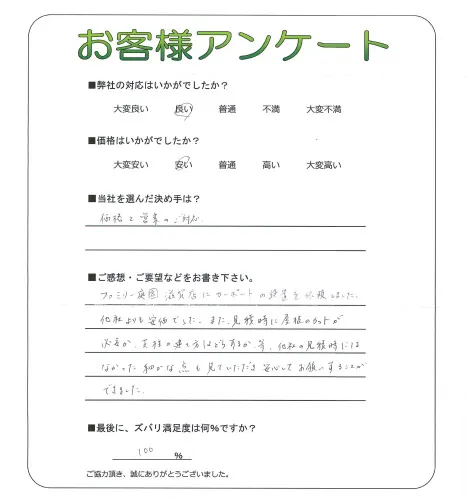 お客様アンケート
■弊社の対応はいかがでしたか?
大変良い 良い 普通 不満 大変不満
■価格はいかがでしたか?
大変安い 安い 普通 高い 大変高い
■当社を選んだ決め手は?
価格と営業のご対応
■ご感想・ご要望などをお書き下さい。
ファミリー庭園 滋賀店にカーポートの設置を依頼しました。
他社よりも安価でした。また、見積時に屋根のカットが
必要か、支柱の建て方はどうするか等、他社の見積時には
なかった細かな点も見ていただき安心してお願いすることが
できました。
■最後に、ズバリ満足度は何%ですか?
100 %
ご協力頂き、誠にありがとうございました。